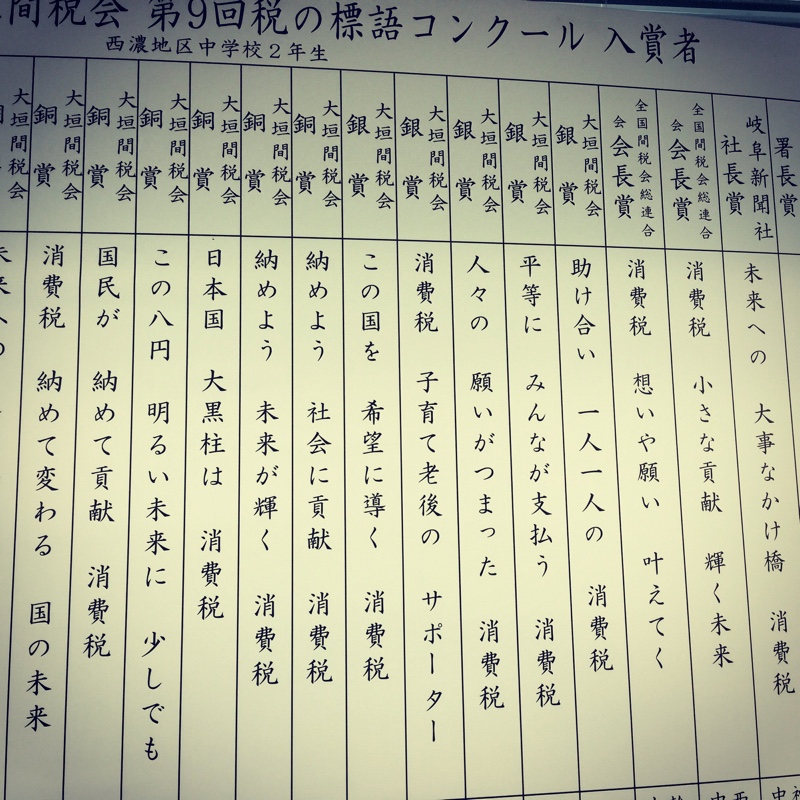 間税会 第9回税の標語コンクール 入賞者
西濃地区中学校2年生
署長賞
岐阜新聞社
社長賞
未来への 大事なかけ橋 消費税
全国間税会総連合
会会長賞
消費税 小さな貢献 輝く未来
全国間税会総連合
会会長賞
消費税 想いや願い 叶えてく
大垣間税会
銀賞
助け合い 一人一人の 消費税
大垣間税会
銀賞
平等に みんなが支払う 消費税
大垣間税会
銀賞
人々の 願いがつまった 消費税
大垣間税会
銀賞
消費税 子育て老後の サポーター
大垣間税会
銀賞
この国を 希望に導く 消費税
大垣間税会
銅賞
納めよう 社会に貢献 消費税
大垣間税会
銅賞
納めよう 未来が輝く 消費税
大垣間税会
銅賞
日本国 大黒柱は 消費税
大垣間税会
銅賞
この八円 明るい未来に 少しでも
大垣間税会
銅賞
国民が 納めて貢献 消費税
大垣間税会
銅賞
消費税 納めて変わる 国の未来
大垣間税会
未来への